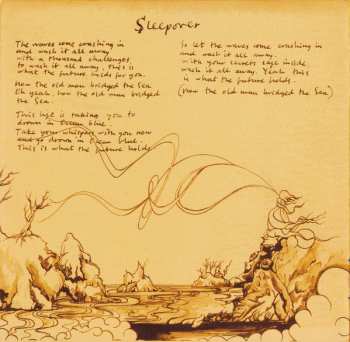 Sleepover
The waves come crashing in
and wash it all away
with a thousand challenges
to wash it all away, this is
what the future holds for you.
How the old man bridged the Sea
Oh yeah how the old man bridged
the Sea.
This life is taking you to
drown in Ocean blue
Take your whispers with you now
and go drown in Ocean blue.
This is what the future holds
So let the waves come crashing in
and wash it all away.
with your secrets safe inside
wash it all away. Yeah this
is what the future holds.
(How the old man bridged the Sea)